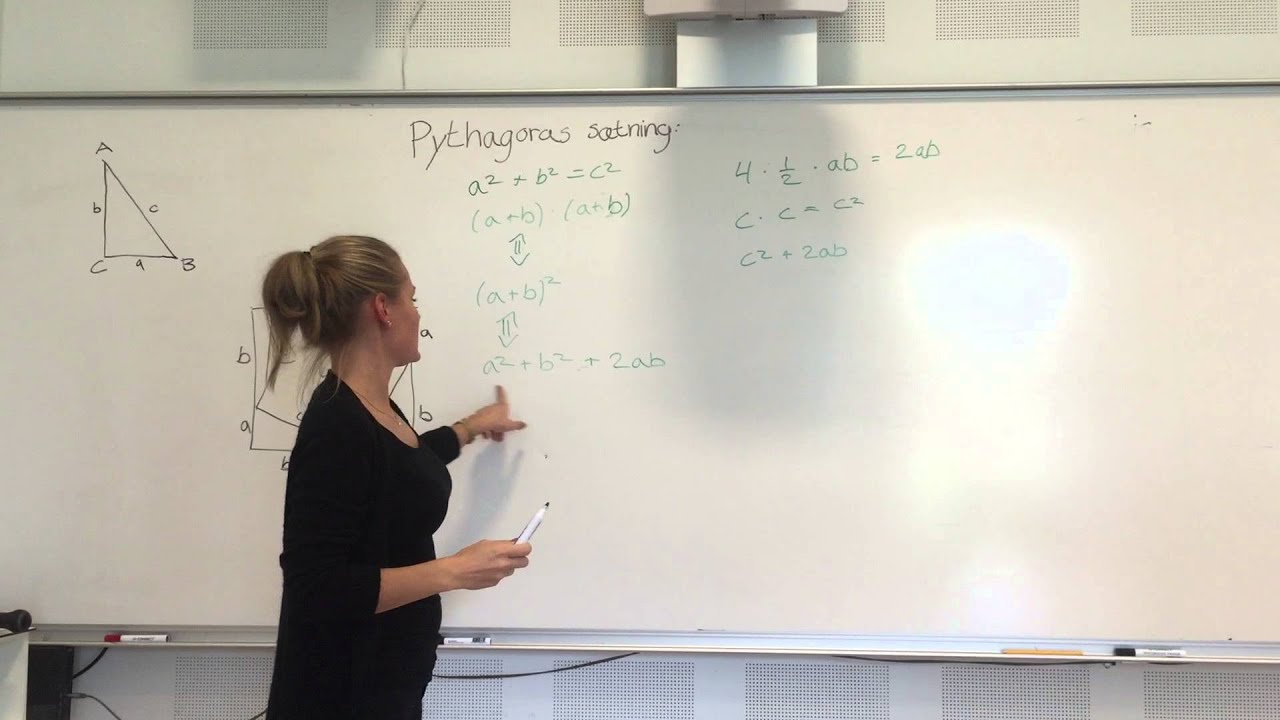 Pythagoras sætning:
a² + b² = c²
(a+b) · (a+b)
⇓
(a+b)²
⇓
a² + b² + 2ab
4 · 1/2 · ab = 2ab
c · c = c²
c² + 2ab
A
b c
C a B
b
a
b
a
b